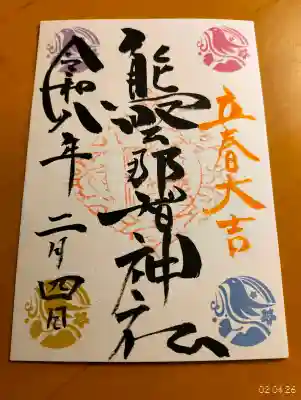 立春大吉
熊野那智神社
令和八年
二月四日
02·04·26